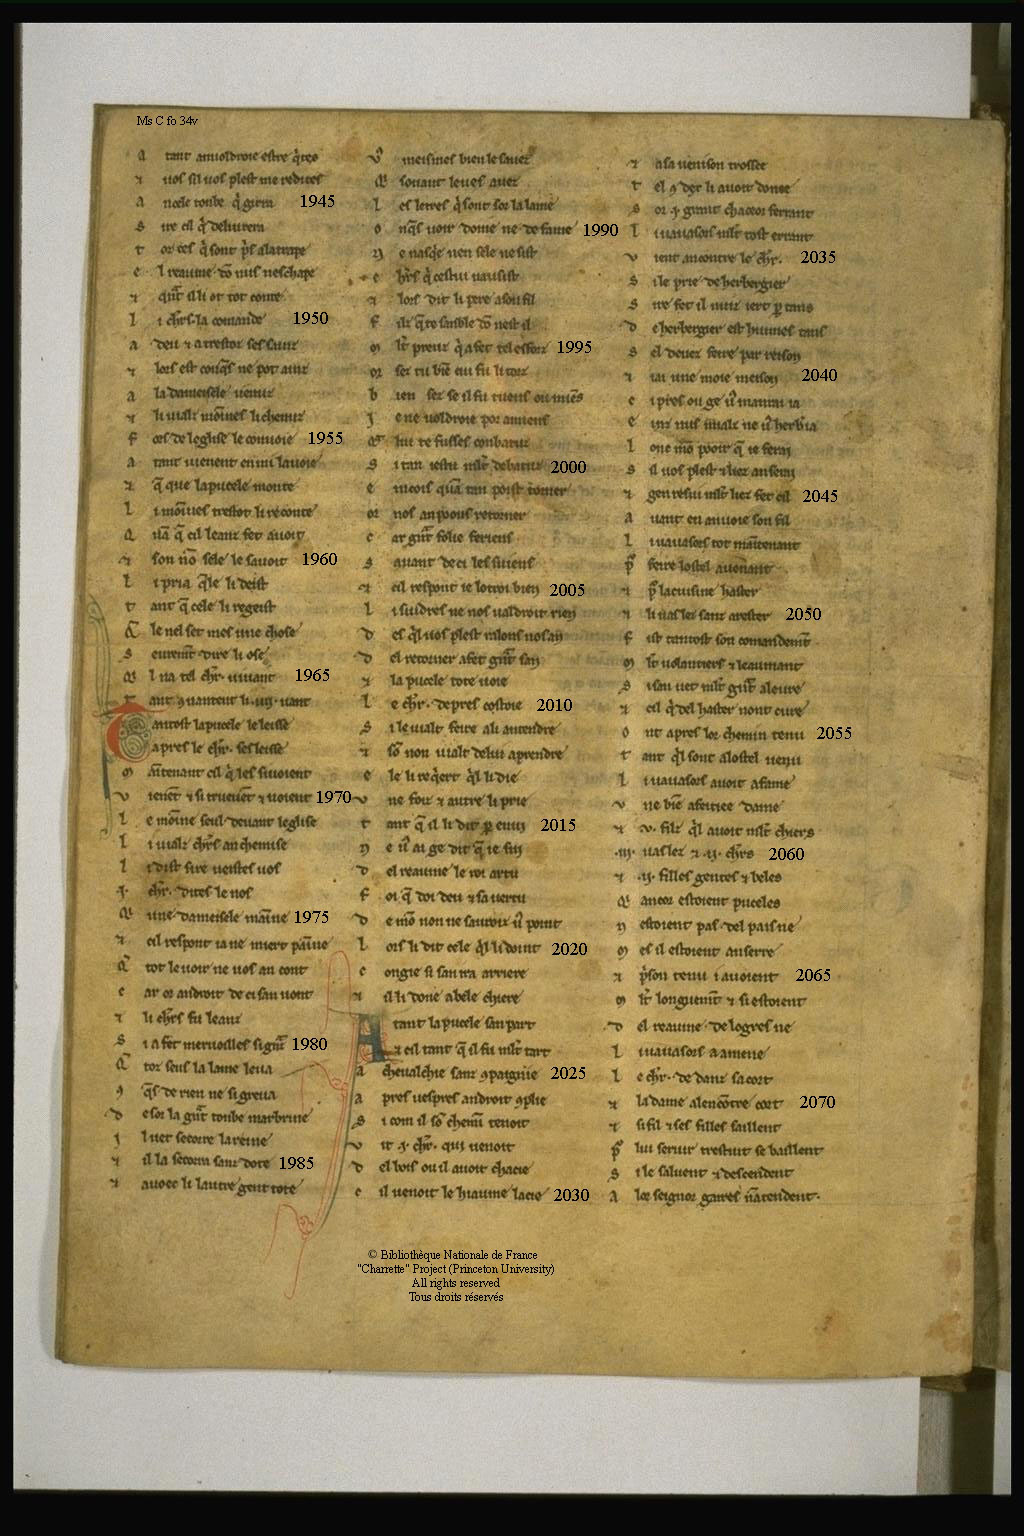 Ms C fo 34v
A tant an uoldroie estre q̃tes
⁊ uos sil uos plest me redites
A ncele tonbe q̃ girra 1945
S ire cil q̃ deliuerra
T oz ces q̃ sont p̃s a la trape
E l reaume dõ nus neschape
⁊ quãt il li ot tot conte
L i chrs la comande 1950
A deu ⁊ a trestoz ses sainz
⁊ lors est
A la dameisele uenuz
⁊ li uialz moines li chenuz
F ors de leglise le conuoie 1955
A tant uienent en mi la uoie
⁊ q̃ que la pucele monte
L i moines trestot li reconte
Q̃ q̃ cil leanz fet auoit
⁊ son nõ sele le sauoit 1960
L i pria q̃le li deist
T ant q̃ cele li regeist
Q̃ le nel set mes une chose
S euremt dire li ose
Q l na tel chr uiuant 1965
T ant con uantent li .iiij. uant
Tantost la pucele le leisse
apres le chr ses leisse
M aĩtenant cil q̃ les siuoient
V ienẽt ⁊ si trueuẽt ⁊ uoient 1970
L e moine seul deuant leglise
L i uialz chrs an chemise
L i dist sire ueistes uos
.I. chr dites le nos
Q une dameisele maine 1975
⁊ cil respont ia ne miert paine
Q̃ tot le uoir ne uos an cont
C ar or androit de ci san uont
⁊ li chrs fu leanz
S i a fet meruoilles si grãz 1980
Q̃ toz seus la lame leua
C q̃s de rien ne si greua
D esor la grãt tonbe marbrine
I l uet secorre la reine
⁊ il la secorra sanz dote 1985
⁊ auoec li lautre gent tote
V meismes bien le sauez
Q souant leues auez
L es letres q̃ sont sor la lame
O nq̃s uoir dome ne de fame 1990
N e nasqe nen sele ne sist
C hrs q̃ cestui uausist
⁊ lors dit li pere a son fil
F ilz q̃ te sanble dõ nest il
M lt preuz q̃ a fet tel esforz 1995
Or sez tu biẽ cui fu li torz
B ien sez se il fu tuens ou miẽs
J e ne uoldroie por amiens
Q hui te fusses conbatuz
S i tan ies tu mlt debatuz 2000
E incois quã tan poist torner
Or nos an poons retorner
C ar grãt folie feriens
S auant de ci les siuiens
⁊ cil respont ie lotroi bien 2005
L i siudres ne nos ualdroit rien
D es q̃l uos plest ralons nos an
D el retorner a fet grãt san
⁊ la pucele tote uoie
L e chr de pres costoie 2010
S i le uialt feire a li antendre
⁊ sõ non uialt de lui aprendre
E le li req̃ert q̃l li die
V ne foiz ⁊ autre li prie
T ant q̃ il li dit p enui 2015
N e uos ai ge dit q̃ ie sui
D el reaume le roi artu
F oi q̃ doi deu ⁊ sa uertu
D e mõ non ne sauroiz uos point
L ors li dit cele q̃l li doint 2020
C ongie si san ira arriere
⁊ il li done a bele chiere
A tant la pucele san part
⁊ cil tant q̃ il fu mlt tart
A cheualchie sanz conpaignie 2025
A pres uespres androit conplie
S i com il sõ chemĩ tenoit
V it .I. chr. qui uenoit
D el bois ou il auoit chacie
C il uenoit le hiaume lacie 2030
⁊ a sa uenison trossee
T el con dex li auoit donee
S or .I. grant chaceor ferrant
L i uauasors mlt tost errant
V ient ancontre le chr. 2035
S i le prie de herbergier
S ire fet il nuiz iert p tans
D e herbergier est huimes tans
S el deuez feire par reison
⁊ iai une moie meison 2040
C i pres ou ge uos manrai ia
E inz nus mialz ne uos herbia
L onc mõ pooir q̃ ie ferai
S il uos plest ⁊ liez an serai
⁊ gen resui mlt liez fet cil 2045
A uant en anuoie son fil
L i uauasors tot maitenant
P feire lostel auenant
⁊ p la cuisine haster
⁊ li uaslez sanz arester 2050
F ist tantost son comandemt
M lt uolantiers ⁊ leaumant
S i san uet mlt grãt aleure
⁊ cil q̃ del haster nont cure
O nt apres lor chemin tenu 2055
T ant q̃l sont a lostel uenu
L i uauasors auoit a fame
V ne biẽ afeitiee dame
⁊ .v. filz q̃l auoit mlt chiers
.iij. uaslez ⁊ .ij. chrs 2060
⁊ .ij. filles gentes ⁊ beles
Q ancor estoient puceles
N estoient pas del pais ne
M es il estoient anserre
⁊ p̃son tenu i auoient 2065
M lt longuemt ⁊ si estoient
D el reaume de logres ne
L i uauasors a amene
L e chr de danz sa cort
⁊ la dame a lencõtre cort 2070
⁊ si fil ⁊ ses filles saillent
P lui seruir trestuit se baillent
S i le saluent ⁊ descendent
A lor seignor gaires nãtendent.
© Bibliothèque Nationale de France
"Charrette" Project (Princeton University)
All rights reserved
Tous droits réservés